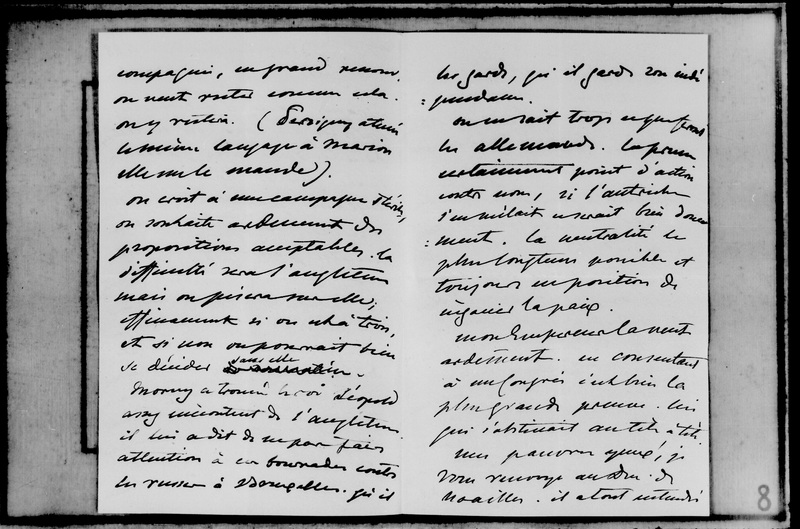 compagnie, en grand renom.
on veut rester comme cela.
on y restera. (Persigny a tenu
le même langage à Marion
elle me le mande).
on croit à une campagne d'hiver,
on souhaite ardemment des
propositions acceptables. la
difficulté sera l'angleterre
mais on pesera sur elle,
efficacement si on est à trois,
et si non on pourrait bien
se décider sans elle.
Morny a trouvé le roi Léopold
assez mécontent de l'angleterre.
il lui a dit de ne pas faire
attention à ces bourrades contre
les russes à Bruxelles. qu'il
les garde, qu'il garde son indé
:pendance.
on ne sait trop ce que feront
les allemands. la prusse
certainement point d'action
contre nous, si l'autriche
s'en mêlait ce serait bien douce
:ment. la neutralité le
plus longtems possible et
toujours en position de
négocier la paix.
mon Empereur la veut
ardemment. en consentant
à un Congrès c'est bien la
plus grande preuve. lui
qui s'obstinait au tête à tête.
mes pauvres yeux! je
vous renvoye au Duc de
Noailles. il a tout entendu
8